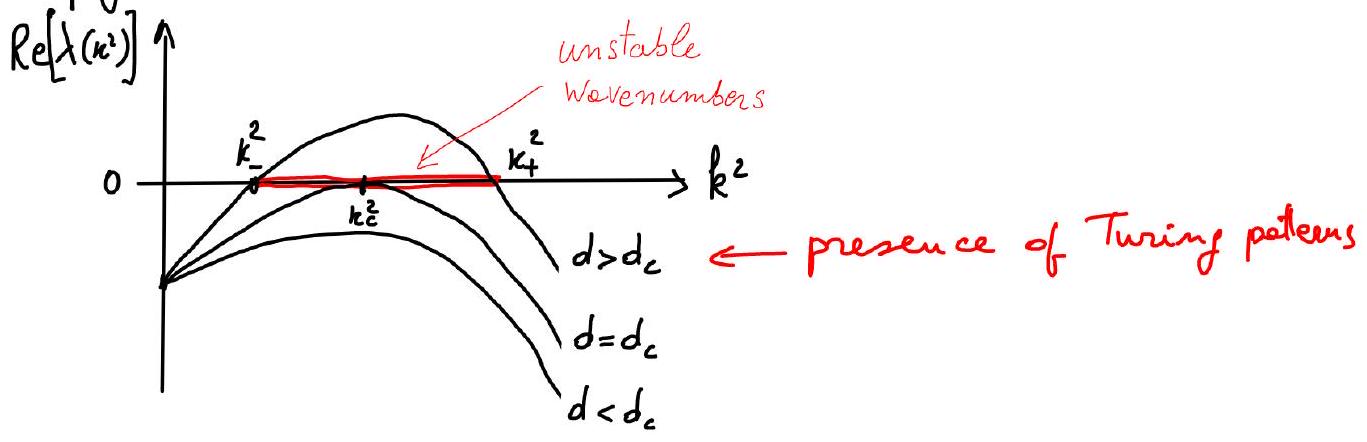 Re[λ(k²)]
unstable
wavenumbers
k₋²
k₊²
0
k²
k_c²
d>d_c
← presence of Turing patterns
d=d_c
d<d_c